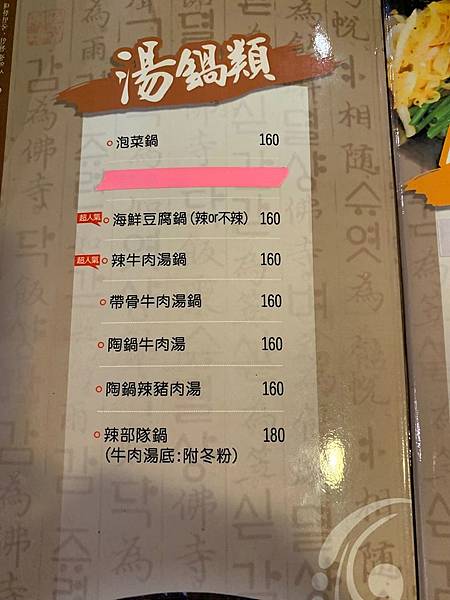 湯鍋類
泡菜鍋 160
超人氣 海鮮豆腐鍋(辣or不辣) 160
超人氣 辣牛肉湯鍋 160
帶骨牛肉湯鍋 160
陶鍋牛肉湯 160
陶鍋辣豬肉湯 160
辣部隊鍋 180
(牛肉湯底:附冬粉)